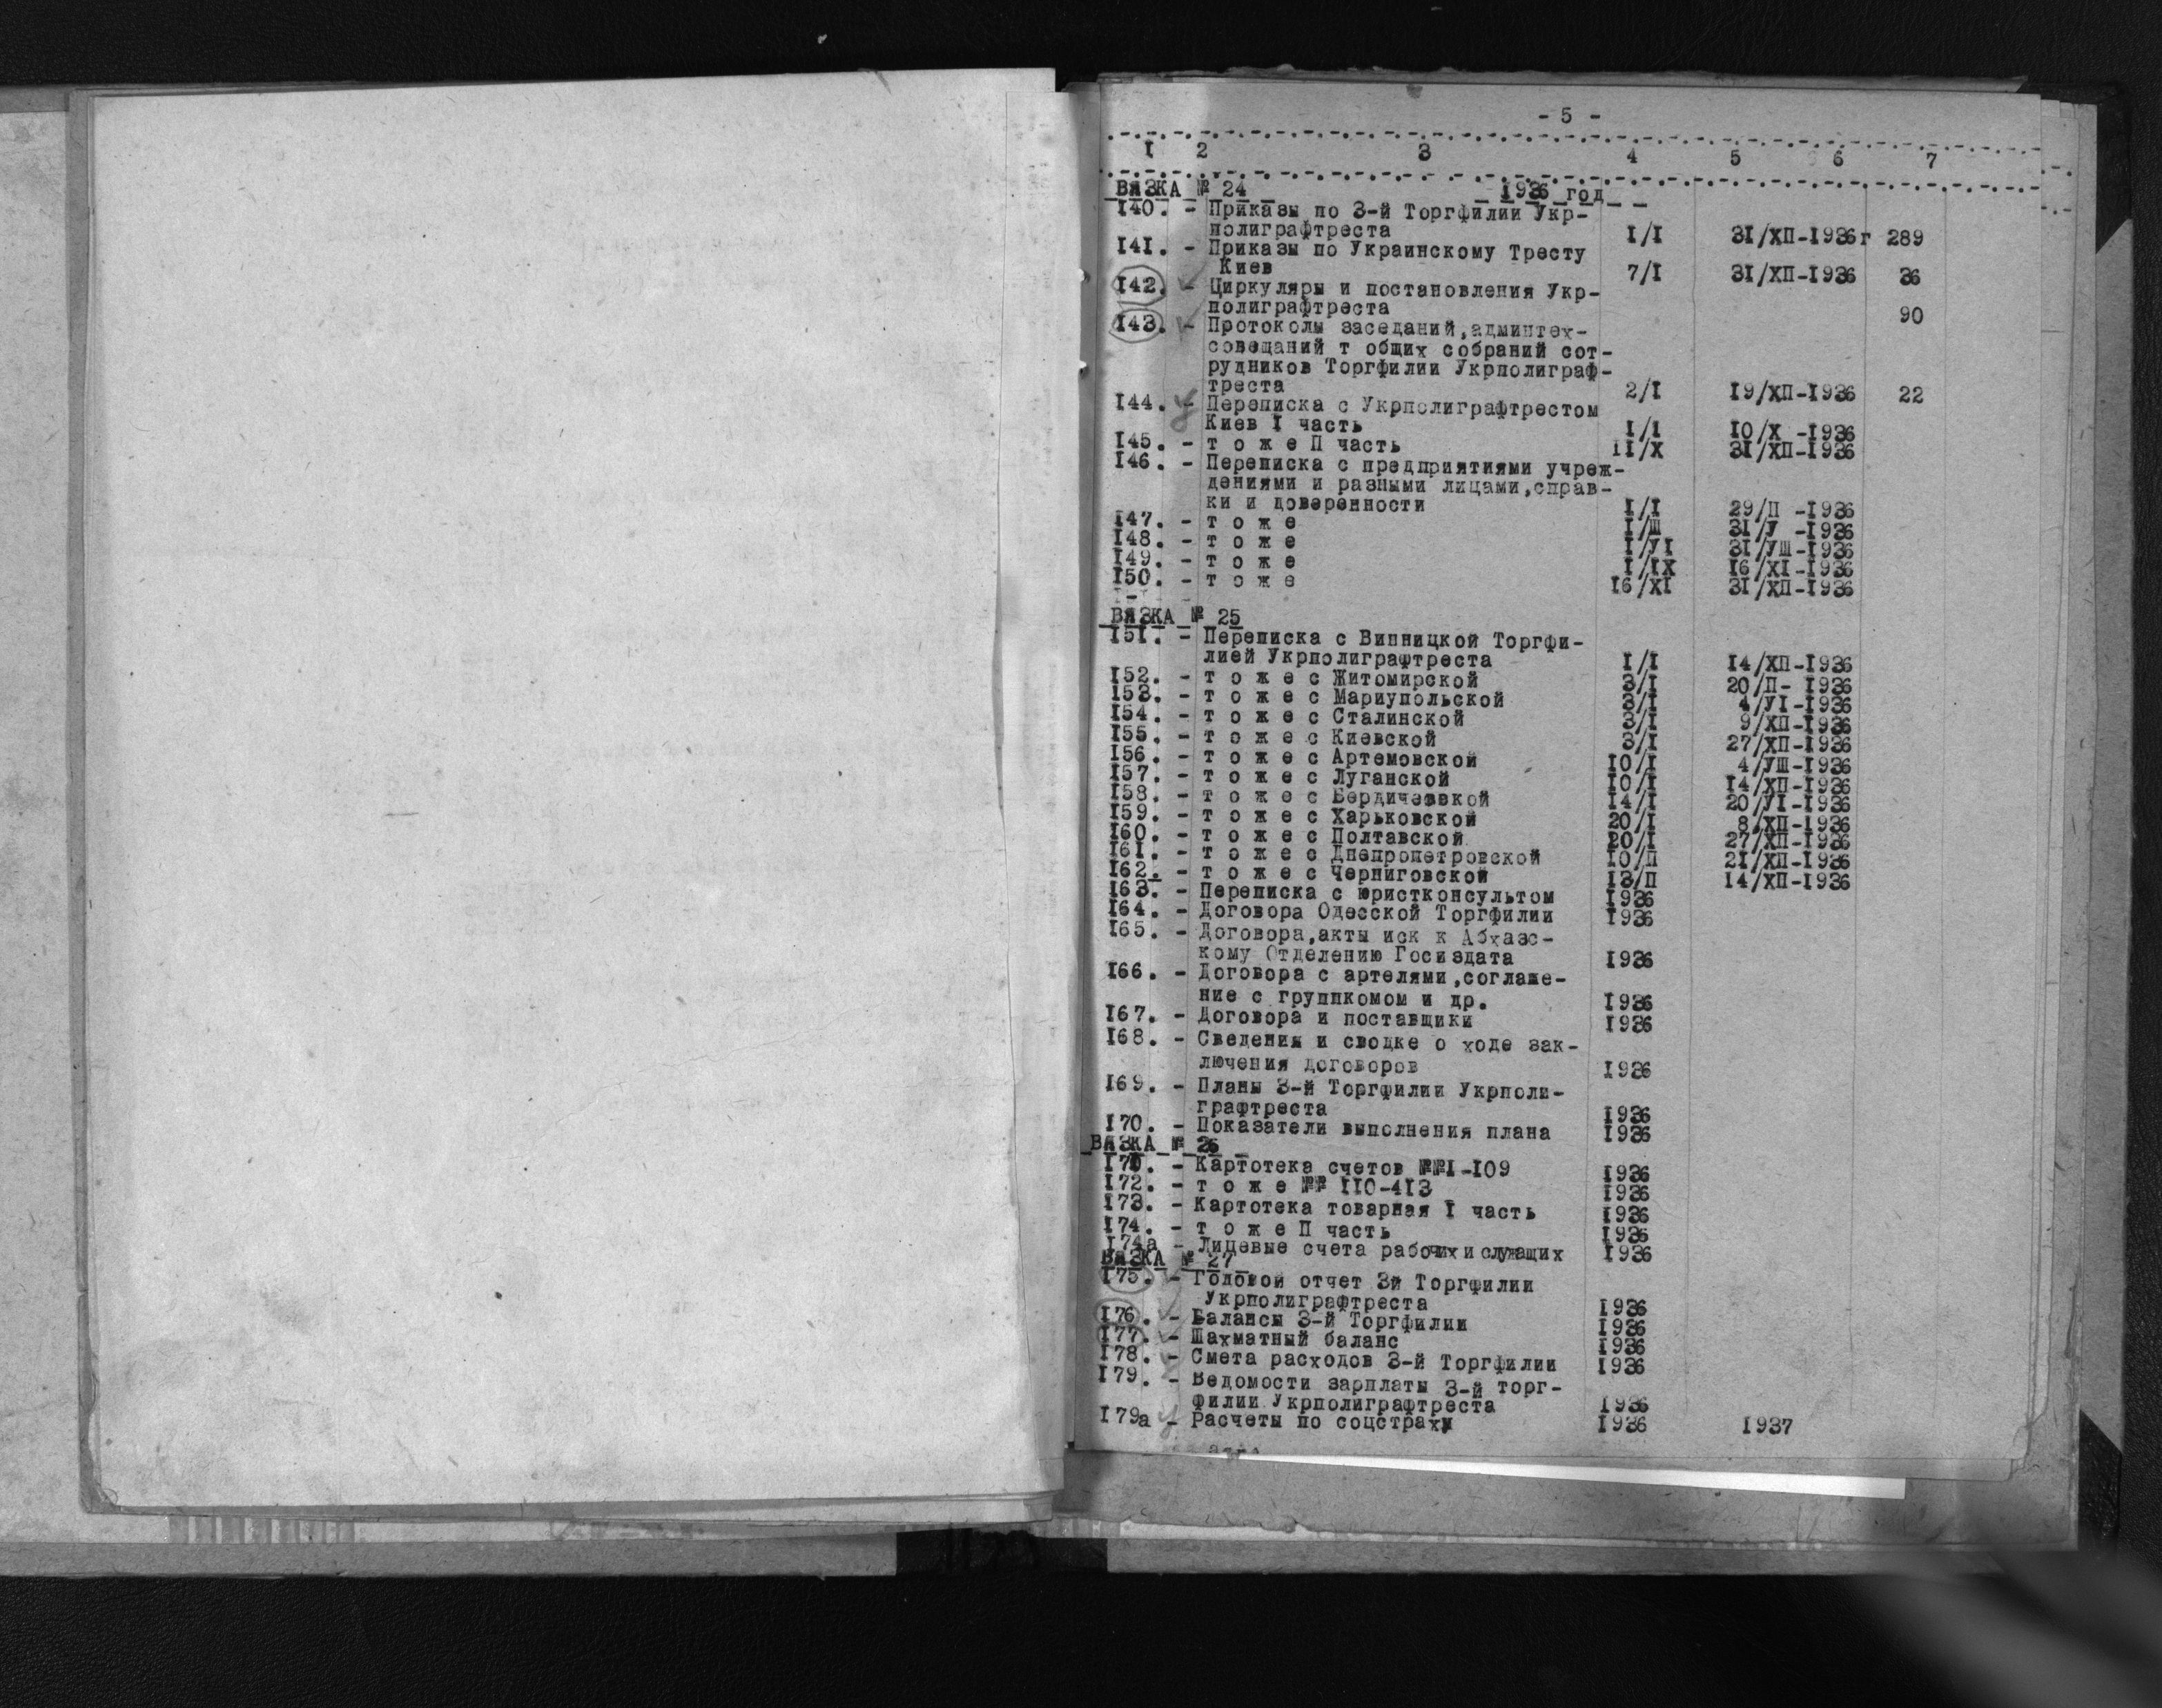 - 5 -
I 2 3 4 5 6 7
ВЯЗКА № 24 1936 год
I40. - Приказы по 3-й Торгфилии Укр-
полиграфтреста I/I 3I/ХП-I936г 289
I4I. - Приказы по Украинскому Тресту
Киев 7/I 3I/ХП-I936 36
I42. - Циркуляры и постановления Укр-
полиграфтреста 90
I43. - Протоколы заседаний,админтех-
совещаний т общих собраний сот-
рудников Торгфилии Укрполиграф-
треста 2/I I9/ХП-I936 22
I44. - Переписка с Укрполиграфтрестом
Киев I часть I/I IO/X -I936
I45. - т о ж е П часть II/X 3I/ХП-I936
I46. - Переписка с предприятиями учреж-
дениями и разными лицами,справ-
ки и доверенности I/I 29/П -I936
I47. - т о ж е I/Ш 3I/У -I936
I48. - т о ж е I/УI 3I/УШ-I936
I49. - т о ж е I/IX I6/XI-I936
I50. - т о ж е I6/XI 3I/ХП-I936
ВЯЗКА № 25
I5I. - Переписка с Винницкой Торгфи-
лией Укрполиграфтреста I/I I4/ХП-I936
I52. - т о ж е с Житомирской 3/I 20/П- I936
I53. - т о ж е с Мариупольской 3/I 4/УI-I936
I54. - т о ж е с Сталинской 3/I 9/ХП-I936
I55. - т о ж е с Киевской 3/I 27/ХП-I936
I56. - т о ж е с Артемовской IO/I 4/УШ-I936
I57. - т о ж е с Луганской IO/I I4/ХП-I936
I58. - т о ж е с Бердичеввкой I4/I 20/УI-I936
I59. - т о ж е с Харьковской 20/I 8/ХП-I936
I60. - т о ж е с Полтавской 20/I 27/ХП-I936
I6I. - т о ж е с Днепропетровской IO/П 2I/ХП-I936
I62. - т о ж е с Черниговской I3/П I4/ХП-I936
I63. - Переписка с юристконсультом I936
I64. - Договора Одесской Торгфилии I936
I65. - Договора,акты иск к Абхазс-
кому Отделению Госиздата I936
I66. - Договора с артелями,соглаше-
ние с группкомом и др. I936
I67. - Договора и поставщики I936
I68. - Сведения и сводке о ходе зак-
лючения договоров I936
I69. - Планы 3-й Торгфилии Укрполи-
графтреста I936
I70. - Показатели выполнения плана I936
ВЯЗКА № 26
I7I. - Картотека счетов №№I-I09 I936
I72. - т о ж е №№ IIO-4I3 I936
I73. - Картотека товарная I часть I936
I74. - т о ж е П часть I936
I74а - Лицевые счета рабочих и служащих I936
ВЯЗКА № 27
I75. - Годовой отчет 3й Торгфилии
Укрполиграфтреста I936
I76. - Балансы 3-й Торгфилии I936
I77. - Шахматный баланс I936
I78. - Смета расходов 3-й Торгфилии I936
I79. - Ведомости зарплаты 3-й торг-
филии Укрполиграфтреста I936
I79а - Расчеты по соцстраху I936 I937